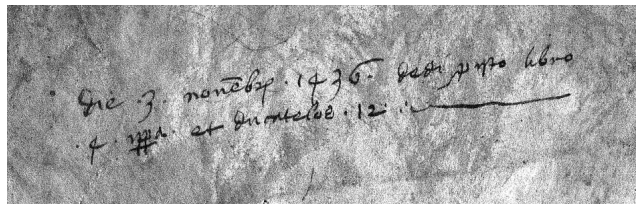 die · 3 · novēbr · 1436 · dedi p isto libro
· 4 · et ducatelos · 12 ·